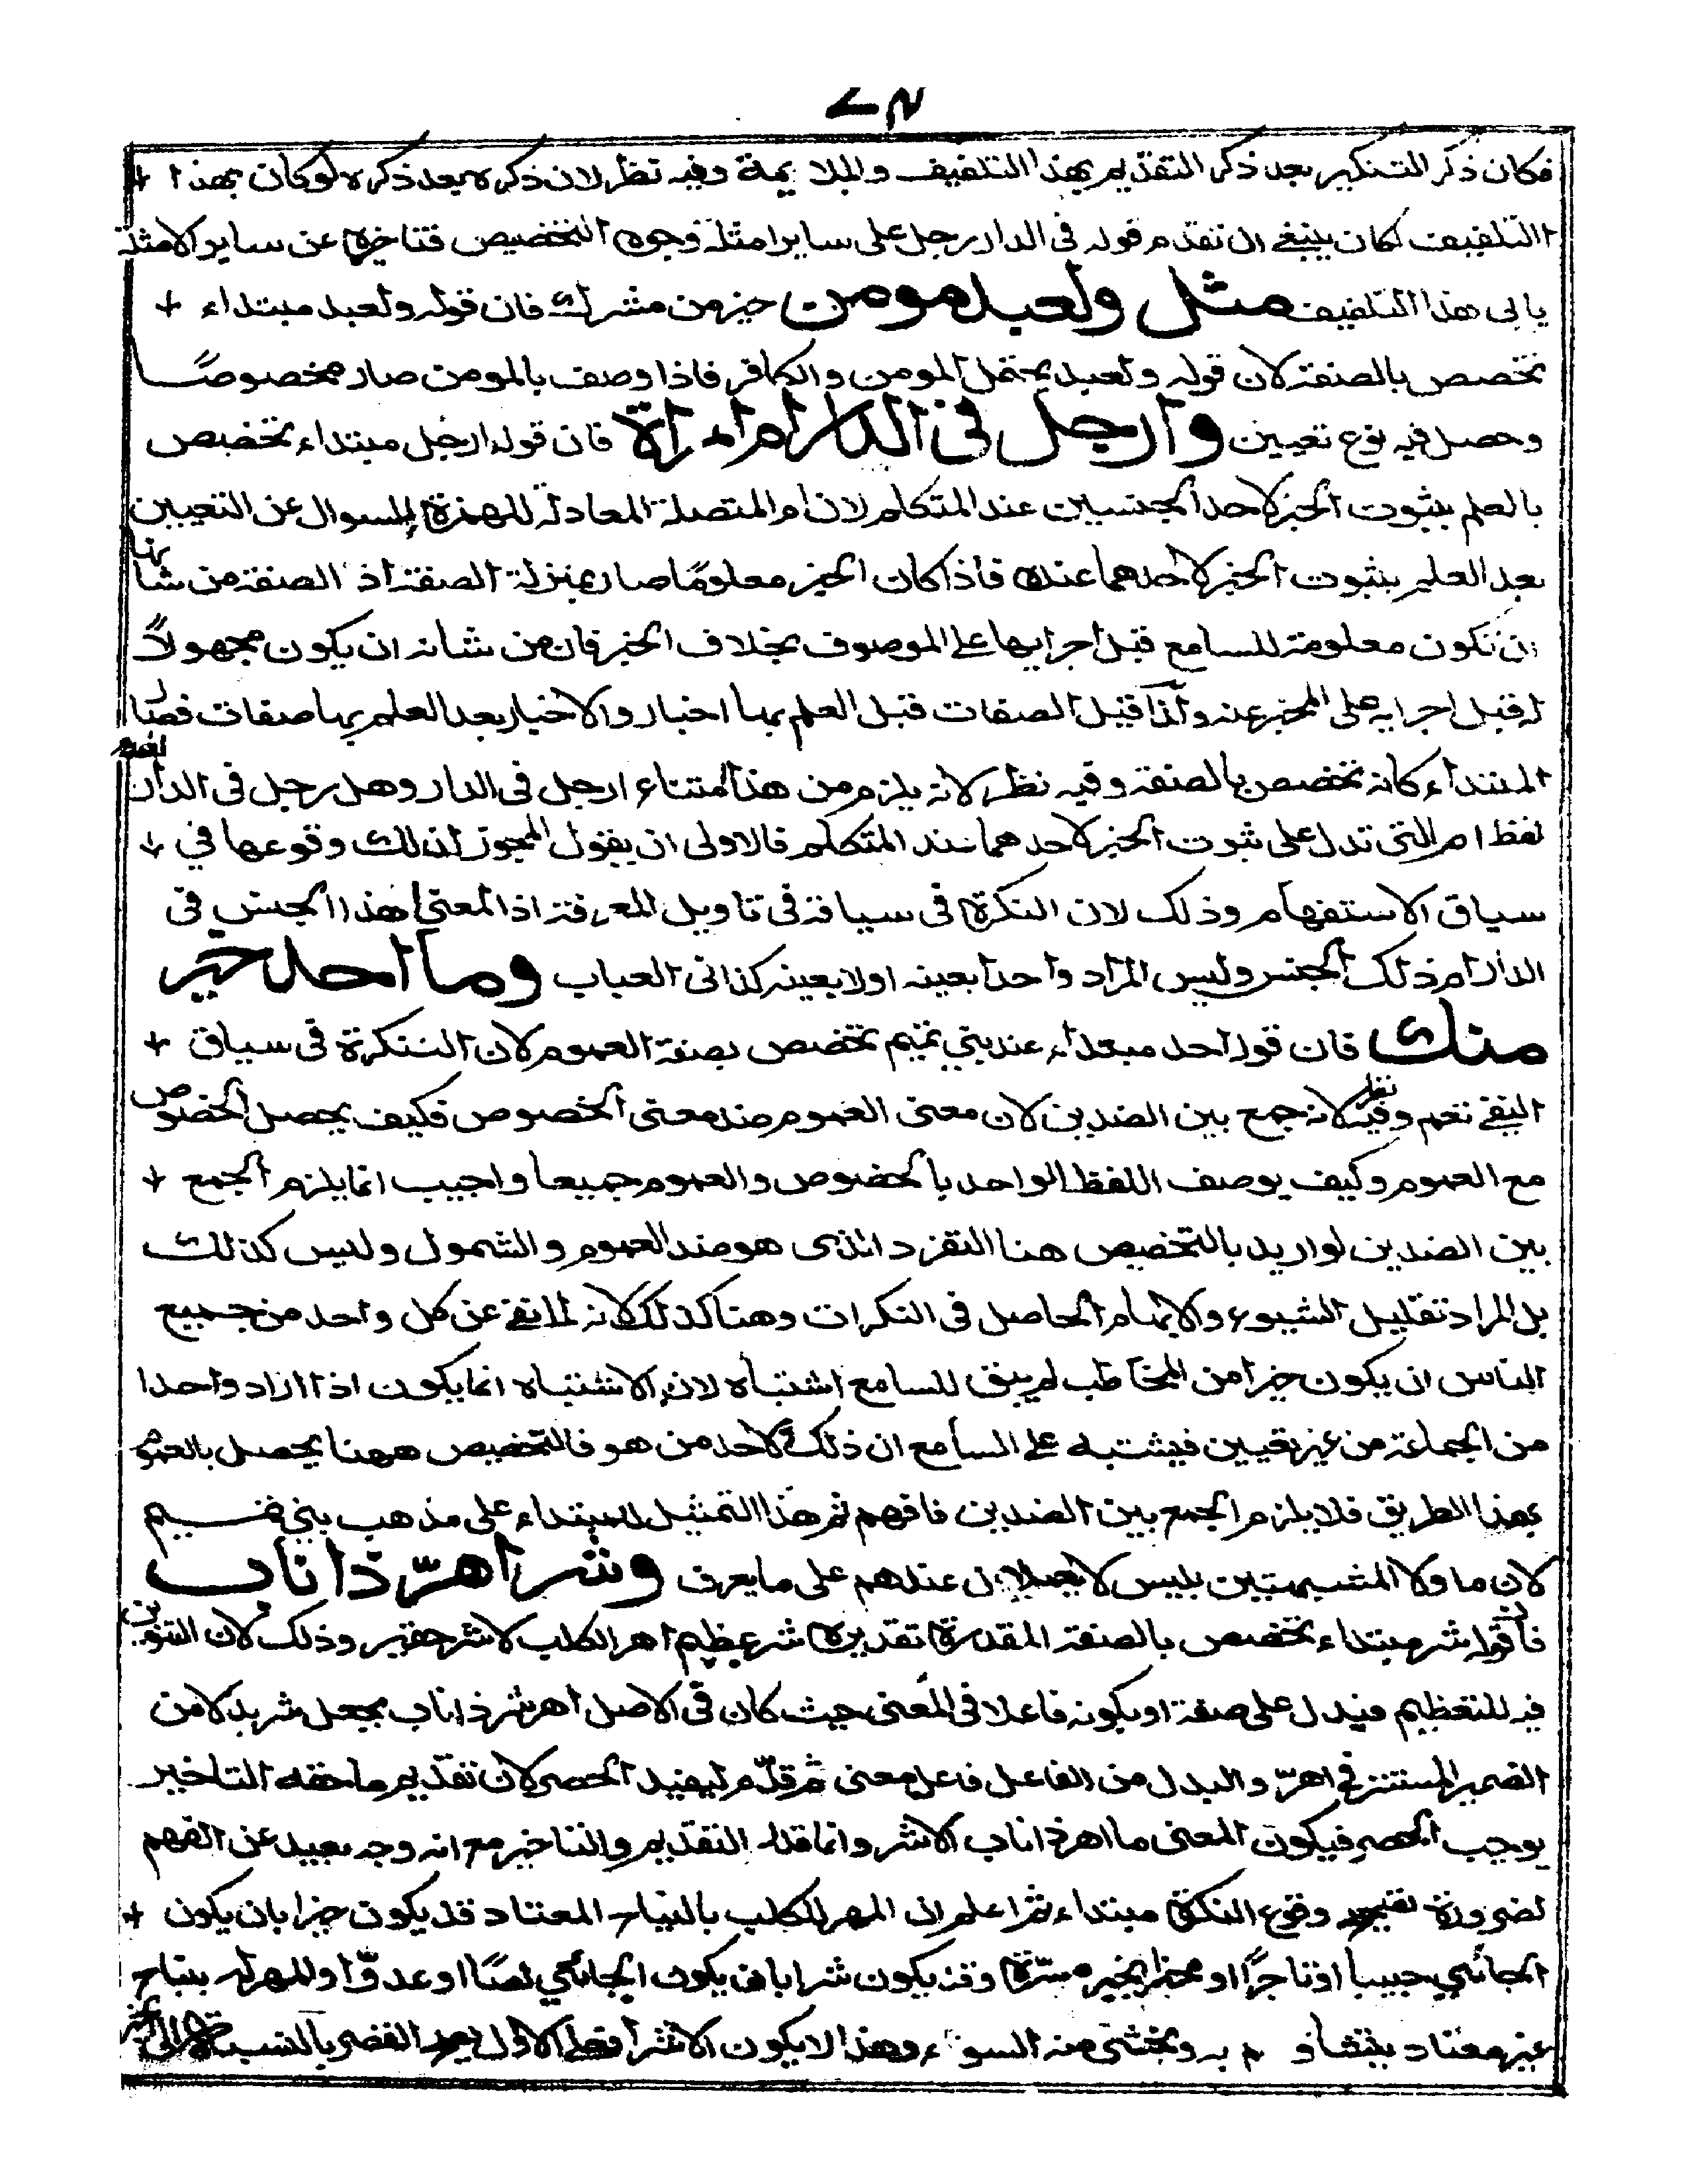 فكان ذكر التنكير بعد ذكر التقديم بهذا التلفيف والملايمة وفيه نظر لان ذكره بعد ذكره لو كان بهذا
التلفيف لكان ينبغي ان تقدم قوله في الدار رجل على ساير امثلة وجوه التخصيص فتاخيره عن ساير الامثلة
يابى هذا التلفيف مثل ولعبد مومن خير من مشرك فان قوله ولعبد مبتداء
تخصص بالصفة لان قوله ولعبد يحتمل المومن والكافر فاذا وصف بالمومن صار مخصوصًا
وحصل فيه نوع تعيين وارجل في الدار ام امراة فان قوله ارجل مبتداء تخصيص
بالعلم بثبوت الخبر لاحد الجنسين عند المتكلم لان ام المتصلة المعادلة للهمزة للسوال عن التعيين
بعد العلم بثبوت الخبر لاحدهما عنده فاذا كان الخبر معلومًا صار بمنزلة الصفة اذ الصفة من شانها
ان تكون معلومة للسامع قبل اجرايها على الموصوف بخلاف الخبر فان من شانه ان يكون مجهولاً
له قبل اجرايه على المخبر عنه ولذا قيل الصفات قبل العلم بها اخبار والاخبار بعد العلم بها صفات فصار
المبتداء كانه تخصص بالصفة وفيه نظر لانه يلزم من هذا امتناع ارجل في الدار وهل رجل في الدار لعدم
لفظ ام التي تدل على ثبوت الخبر لاحدهما عند المتكلم فالاولى ان يقول المجوز لذلك وقوعها في
سياق الاستفهام وذلك لان النكرة في سياقه في تاويل المعرفة اذ المعنى اهذا الجنس في
الدار ام ذلك الجنس وليس المراد واحدا بعينه او لا بعينه كذا في العباب وما احد خير
منك فان قوله احد مبتداء عند بني تميم تخصص بصفة العموم لان النكرة في سياق
النفي تعم وفيه نظر لانه جمع بين الضدين لان معنى العموم ضد معنى الخصوص فكيف يحصل الخصوص
مع العموم وكيف يوصف اللفظ الواحد بالخصوص والعموم جميعا واجيب انما يلزم الجمع
بين الضدين لو اريد بالتخصيص هنا التفرد الذى هو ضد العموم والشمول وليس كذلك
بل المراد تقليل الشيوع والابهام الحاصل في النكرات وهنا كذلك لانه لما نفي عن كل واحد من جميع
الناس ان يكون خيرا من المخاطب لم يبق للسامع اشتباه لان الاشتباه انما يكون اذا اراد واحدا
من الجماعة من غير تعيين فيشتبه على السامع ان ذلك الاحد من هو فالتخصيص ههنا يحصل بالعموم
بهذا الطريق فلا يلزم الجمع بين الضدين فافهم ثم هذا التمثيل للمبتداء على مذهب بني تميم
لان ما ولا المشبهتين بليس لا يعملان عندهم على ما يعرف وشر اهرّ ذا ناب
فان قوله شر مبتداء تخصص بالصفة المقدرة تقديره شر عظيم اهر الكلب لا شر حقير وذلك لان التنوين
فيه للتعظيم فيدل على صفة او بكونه فاعلا في المعنى حيث كان في الاصل اهر شر ذا ناب بجعل شر بدلا من
الضمير المستتر في اهرّ والبدل من الفاعل فاعل معنى ثم قدّم ليفيد الحصر لان تقديم ما حقه التاخير
يوجب الحصر فيكون المعنى ما اهر ذا ناب الا شر وانما قدر التقديم والتاخير مع انه وجه بعيد عن الفهم
لضرورة وقوع النكرة مبتداء ثم اعلم ان المهر للكلب بالنباح المعتاد قد يكون خيرا بان يكون
الجائي حبيبا او تاجرًا او مخبرا بخير مسرّة وقد يكون شرا بان يكون الجائي لصًا او عدوّا وللمهر له بنباح
غير معتاد يتشام به ويخشى منه السوء وهذا لا يكون الا شرا فعلى الاول القصر بالنسبة الى الخير